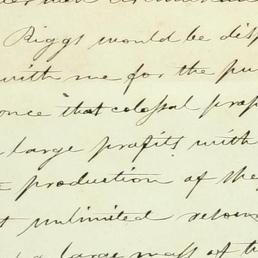 Riggs would be disp
with me for the pu
once that colossal prop
large profits with
production of the
unlimited resour
large mass of t